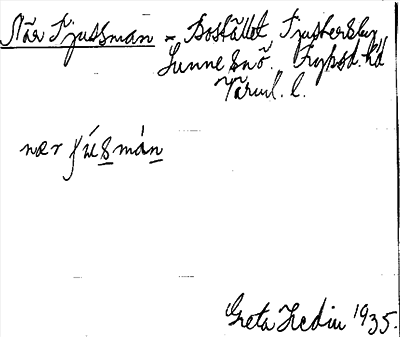 När Tjussman – Bostället, Tjustersby
Sunne snö. Fryksd. hd
Värml. l.
nær ʃúsmán
Greta Hedin 1935.